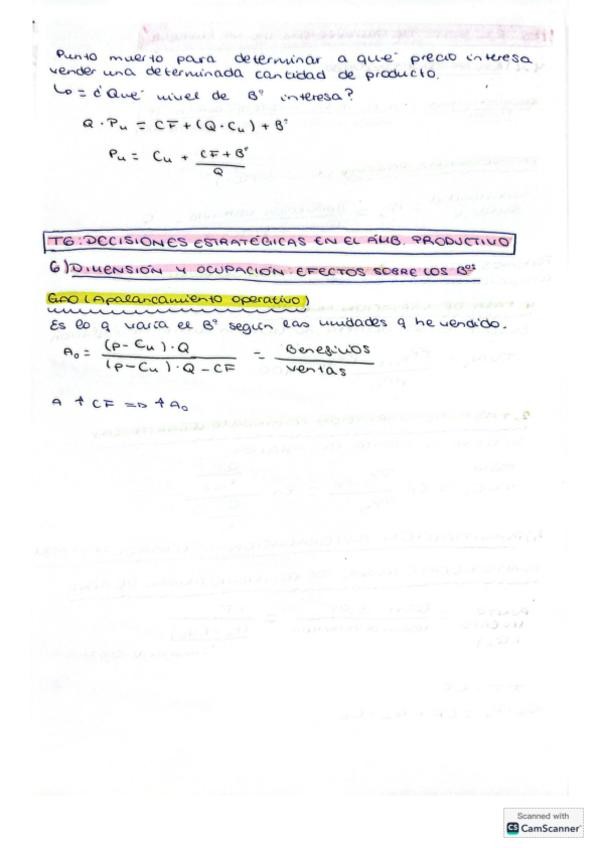 Punto muerto para determinar a qué precio interesa
vender una determinada cantidad de producto.
Lo = ¿Qué nivel de Bº interesa?
Q · Pu = CF + (Q · Cu) + Bº
Pu = Cu + CF + Bº / Q
T6: DECISIONES ESTRATÉGICAS EN EL ÁMB. PRODUCTIVO
6) DIMENSIÓN Y OCUPACIÓN: EFECTOS SOBRE LOS Bºs
GAO (Apalancamiento operativo)
Es lo q varía el Bº según las unidades q he vendido.
A₀ = (P - Cu) · Q / (P - Cu) · Q - CF = Beneficios / ventas
A ↑ CF => ↑ A₀
Scanned with
CS CamScanner